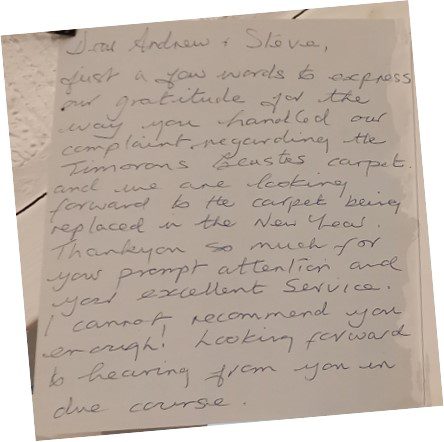 Dear Andrew + Steve,
Just a few words to express
our gratitude for the
way you handled our
complaint regarding the
Timorous Beasties carpet.
and we are looking
forward to the carpet being
replaced in the New Year.
Thankyou so much for
your prompt attention and
your excellent Service.
I cannot recommend you
enough! Looking forward
to hearing from you in
due course.